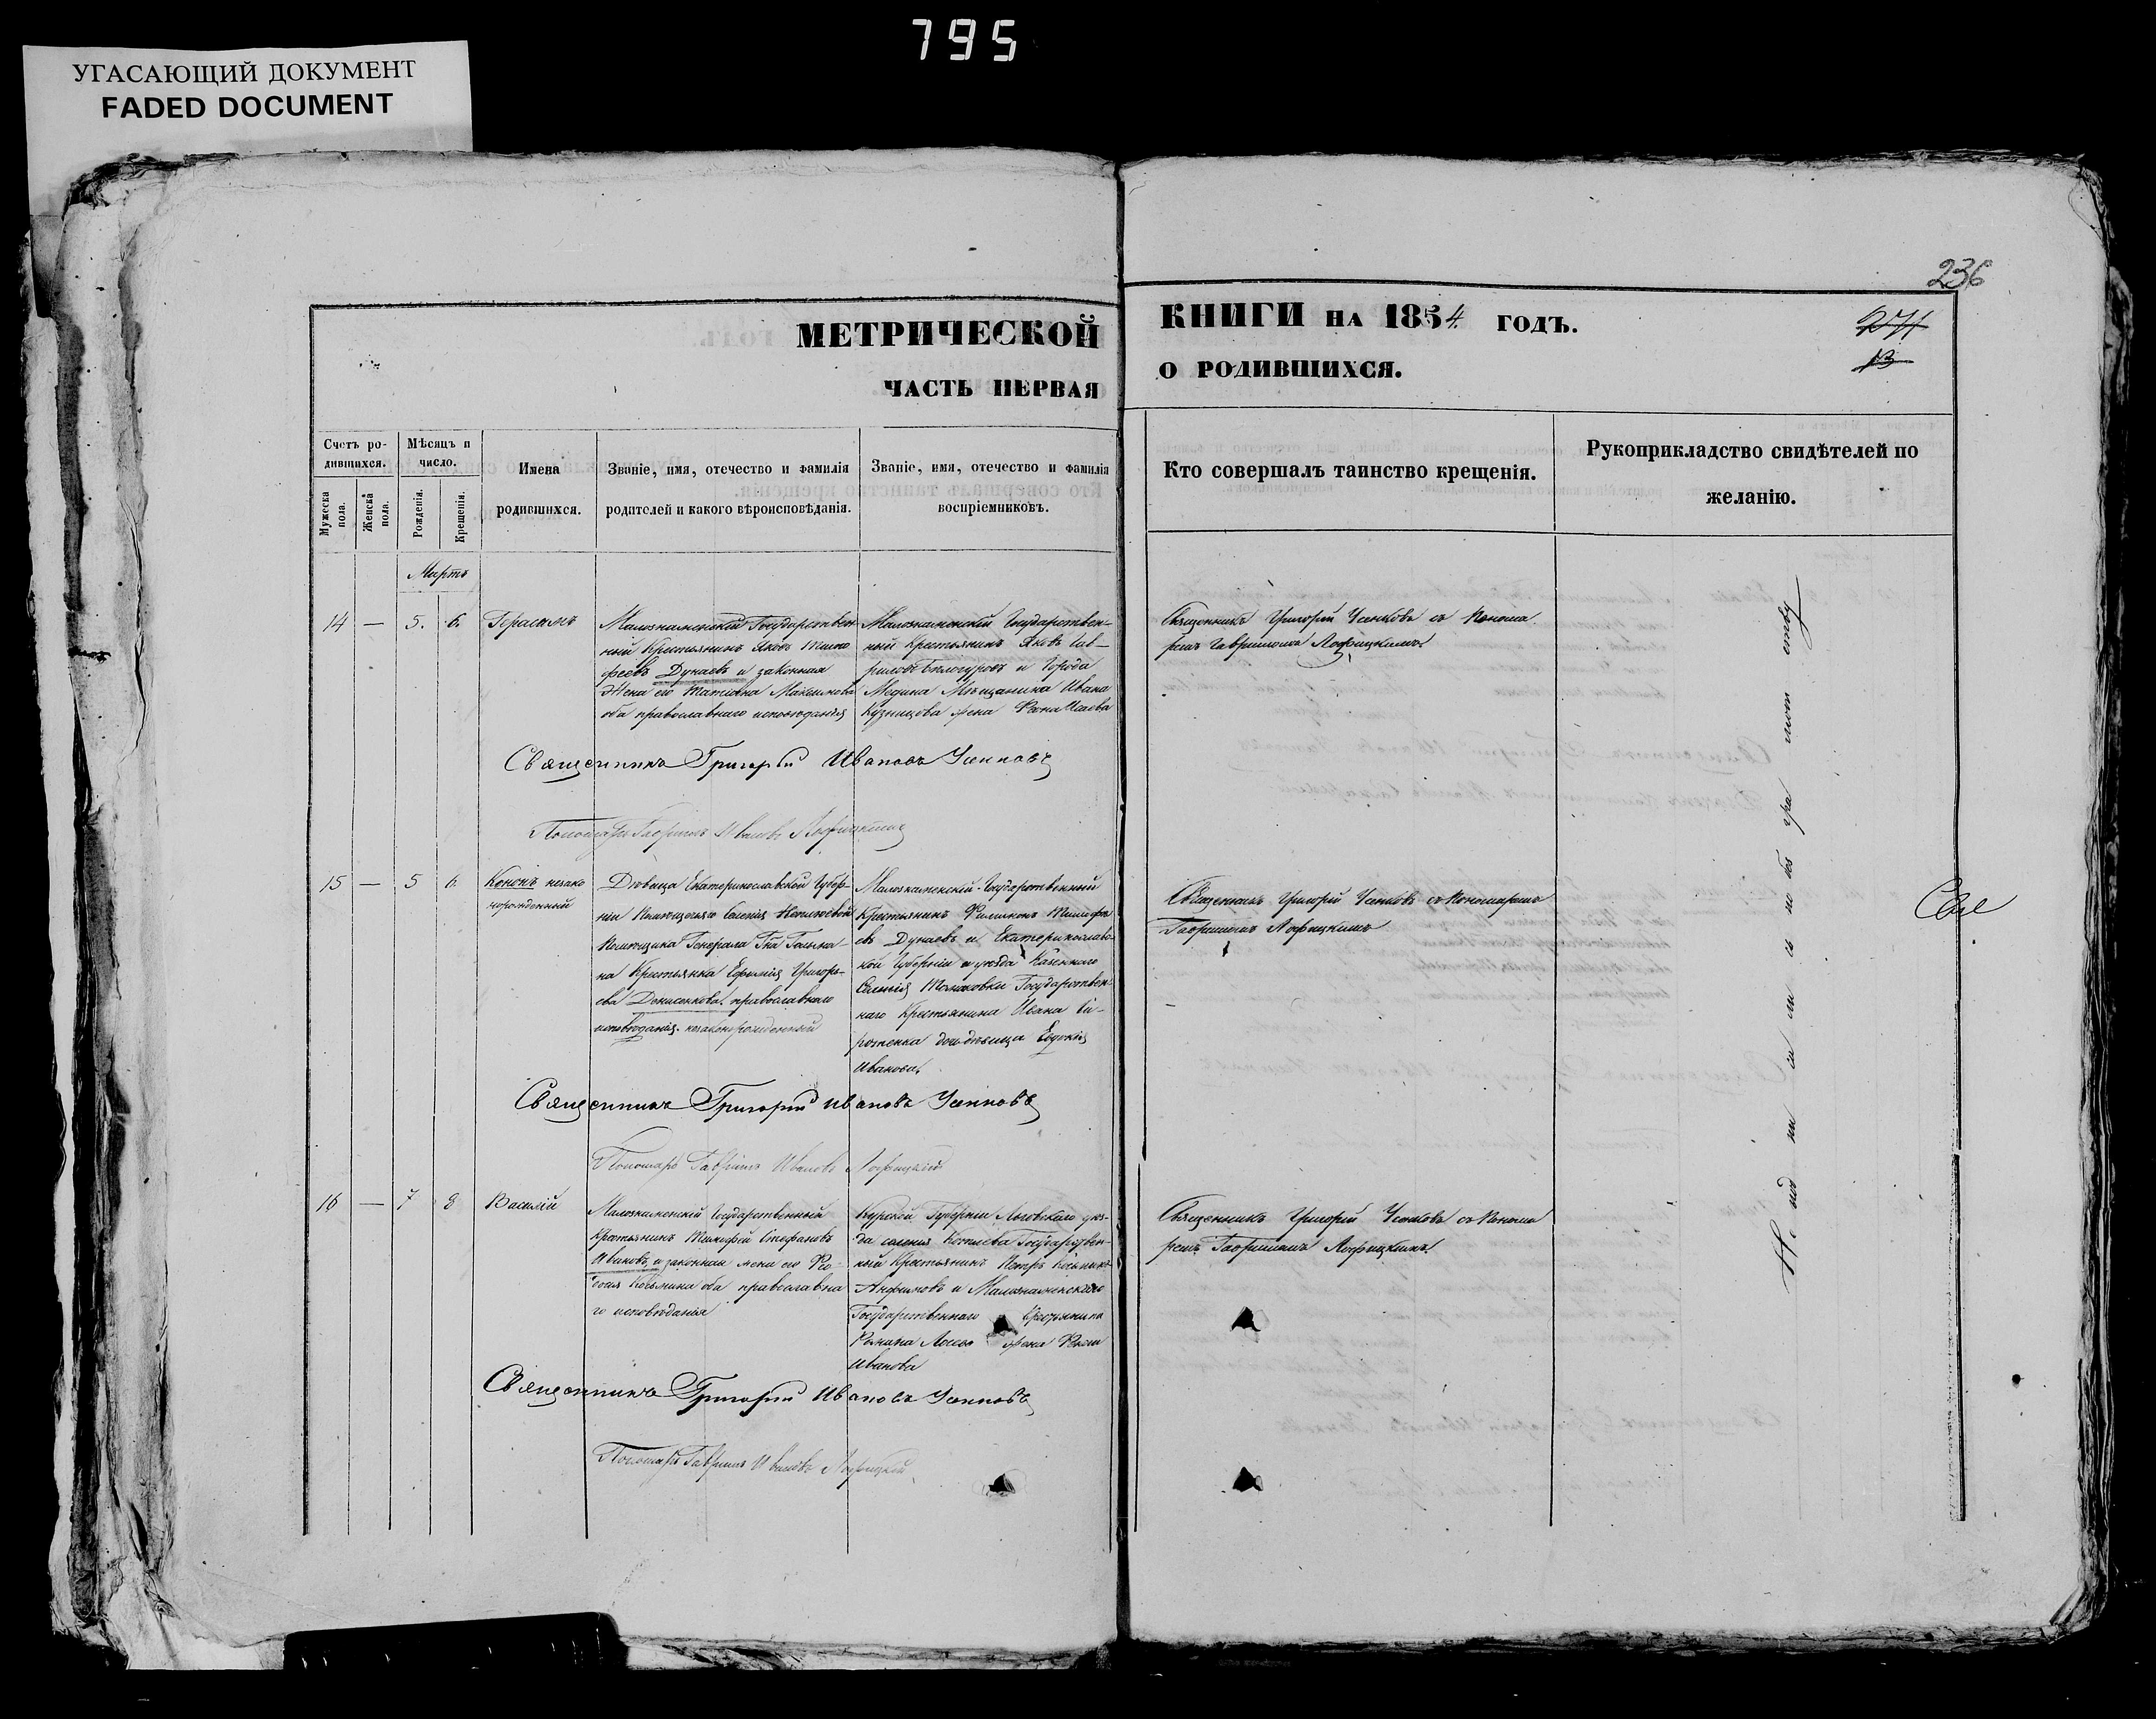 795
УГАСАЮЩИЙ ДОКУМЕНТ
FADED DOCUMENT
236
МЕТРИЧЕСКОЙ
ЧАСТЬ ПЕРВАЯ
КНИГИ НА 1854. ГОДЪ.
О РОДИВШИХСЯ.
13
Счетъ ро-
дившихся.
Мужеска
пола.
Женска
пола.
Мѣсяцъ и
число.
Рожденія.
Крещенія.
Имена
родившихся.
Званіе, имя, отечество и фамилія
родителей и какого вѣроисповѣданія.
Званіе, имя, отечество и фамилія
воспріемниковъ.
Кто совершалъ таинство крещенія.
Рукоприкладство свидѣтелей по
желанію.
Мартъ
14 — 5. 6. Герасимъ
Малознаменскій Государствен-
ный Крестьянинъ Яковъ Тимо
феевъ Дунаевъ и законная
Жена его Татіана Максимова
оба православнаго исповѣданія
Малознаменскій Государствен-
ный Крестьянинъ Яковъ Гав-
риловъ Бѣлогуровъ и Города
Мѣщанина Ивана
Кузнецова жена
Священникъ Григорій Усенковъ съ Понома
ремъ Гавріиломъ
Священникъ Григорій Ивановъ Усенковъ
Пономарь Гавріилъ Ивановъ
15 — 5 6. Кононъ незако
норожденный
Дѣвица Екатеринославской Губер-
ніи Помѣщичьяго Селенія
Помѣщика Генерала
Крестьянка Евфимія Григорь-
ева Денисенкова, православнаго
исповѣданія. незаконорожденный
Малознаменскій Государственный
Крестьянинъ Филимонъ Тимофе
евъ Дунаевъ и Екатеринослав-
кой Губерніи и уѣзда Казеннаго
Селенія Государствен-
наго Крестьянина Ивана Си-
ротенка дочь дѣвица Евдокія
Иванова.
Священникъ Григорій Усенковъ съ Пономаремъ
Гавріиломъ
Священникъ Григорій Ивановъ Усенковъ
Пономарь Гавріилъ Ивановъ
16 — 7 8 Василій
Малознаменскій Государственный
Крестьянинъ Тимофей Стефановъ
Ивановъ, и законная жена его Ѳео-
досія Косьмина оба православна
го исповѣданія
Курской Губерніи Льговскаго уѣз-
да селенія Государствен-
ный Крестьянинъ Петръ Косьминъ
и Малознаменскаго
Государственнаго Крестьянина
жена
Иванова
Священникъ Григорій Усенковъ съ Понома
ремъ Гавріиломъ
Священникъ Григорій Ивановъ Усенковъ
Пономарь Гавріилъ Ивановъ